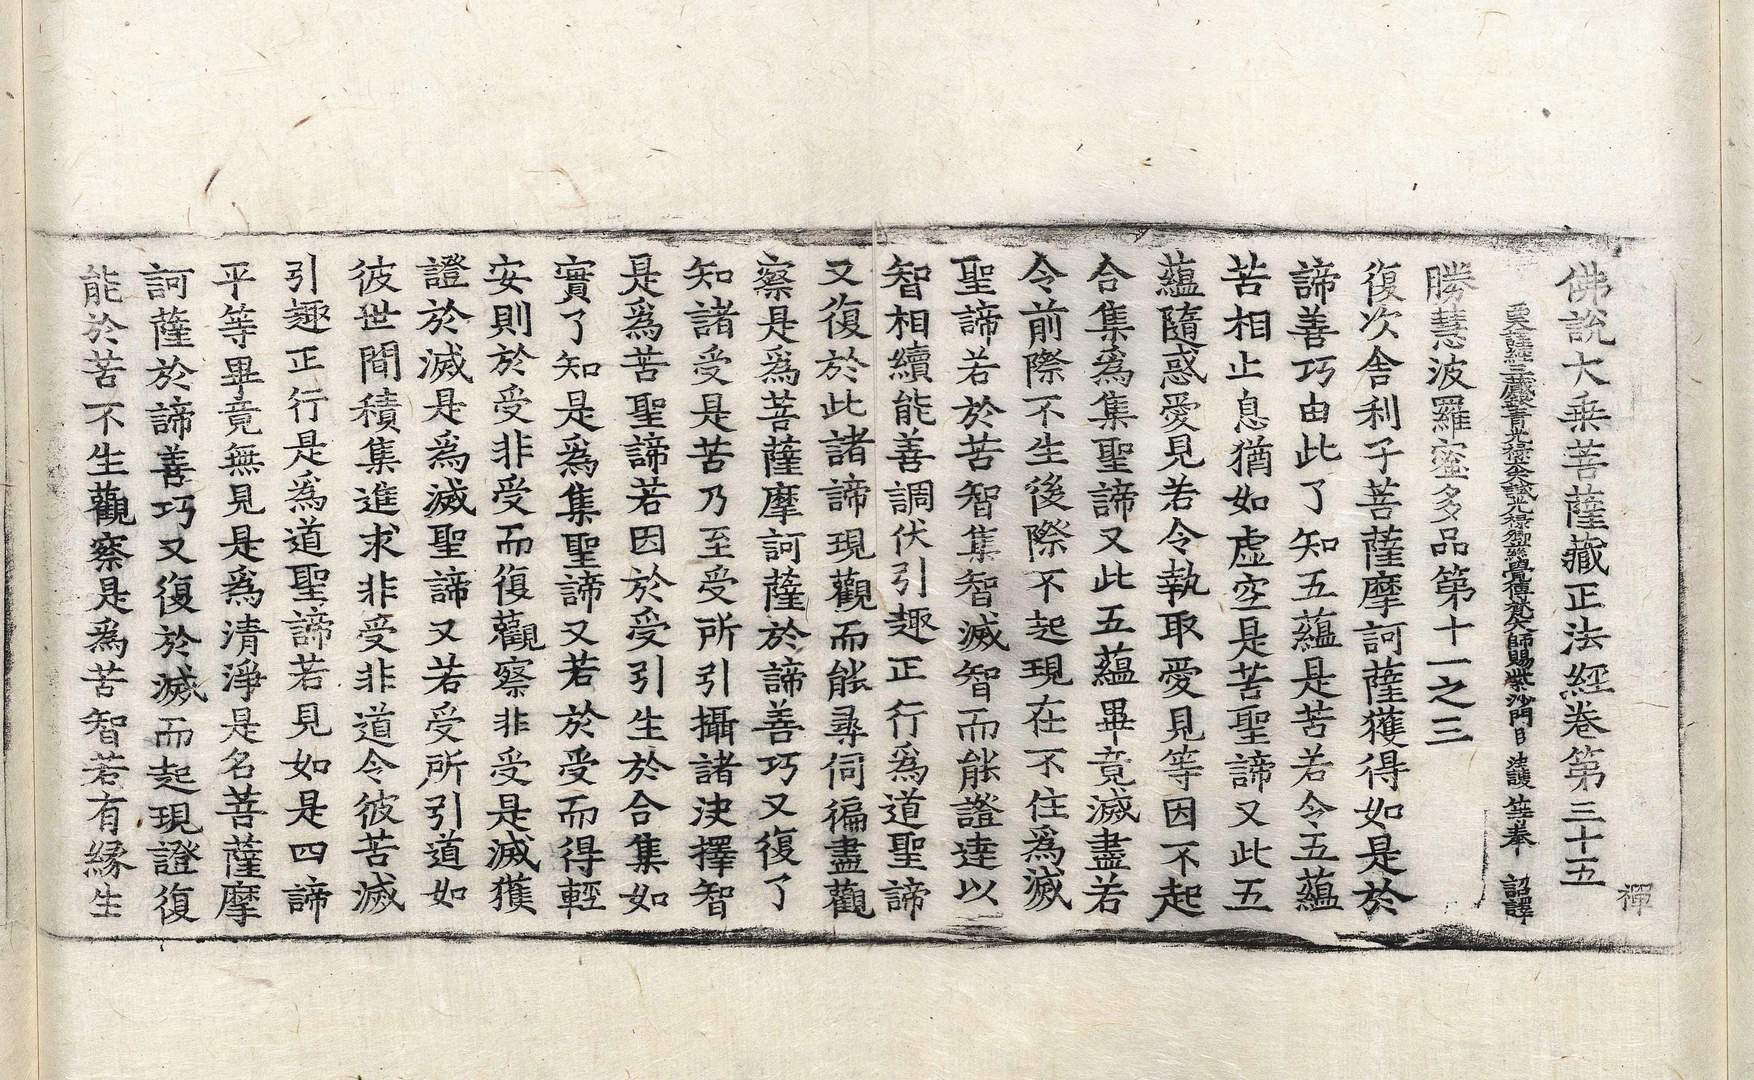 佛說大乘菩薩藏正法經卷第三十五
禪
譯經三藏朝奉大夫試光祿卿傳梵大師賜紫沙門臣法護等奉 詔譯
勝慧波羅蜜多品第十一之三
復次舍利子菩薩摩訶薩獲得如是於
諦善巧由此了知五蘊是苦若令五蘊
苦相止息猶如虛空是苦聖諦又此五
蘊隨惑愛見若令執取愛見等因不起
合集為集聖諦又此五蘊畢竟滅盡若
令前際不生後際不起現在不住為滅
聖諦若於苦智集智滅智而能證達以
智相續能善調伏引趣正行為道聖諦
又復於此諸諦現觀而能尋伺徧盡觀
察是為菩薩摩訶薩於諦善巧又復了
知諸受是苦乃至受所引攝諸決擇智
是為苦聖諦若因於受引生於合集如
實了知是為集聖諦又若於受而得輕
安則於受非受而復觀察非受是滅獲
證於滅是為滅聖諦又若受所引道如
彼世間積集進求非受非道令彼苦滅
引趣正行是為道聖諦若見如是四諦
平等畢竟無見是為清淨是名菩薩摩
訶薩於諦善巧又復於滅而起現證復
能於苦不生觀察是為苦智若有緣生